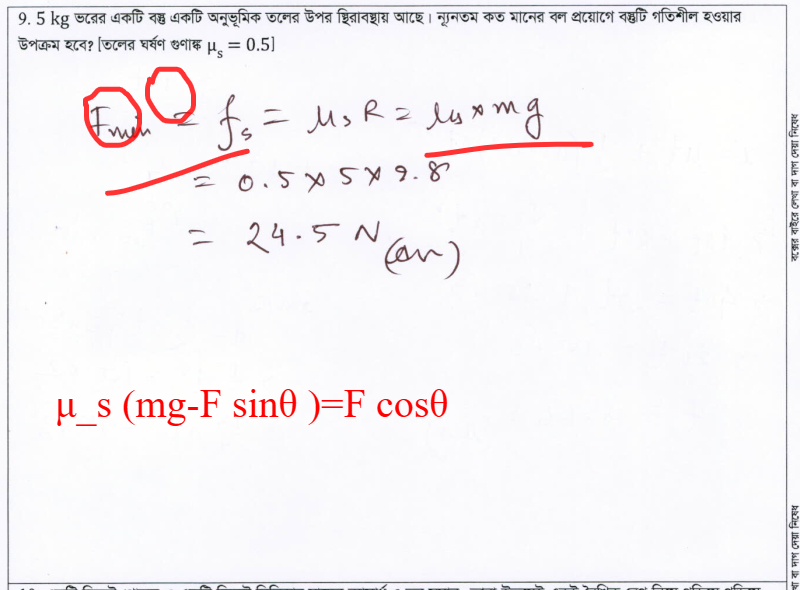 9. 5 kg ভরের একটি বস্তু একটি অনুভূমিক তলের উপর স্থিরাবস্থায় আছে। ন্যূনতম কত মানের বল প্রয়োগে বস্তুটি গতিশীল হওয়ার
উপক্রম হবে? [তলের ঘর্ষণ গুণাঙ্ক μ_s = 0.5]
F_min = f_s = μ_s R = μ_s × mg
= 0.5 × 5 × 9.8
= 24.5 N (Ans)
μ_s (mg-F sinθ )=F cosθ
বক্সের বাইরে লেখা বা দাগ দেয়া নিষেধ
খা বা দাগ দেয়া নিষেধ